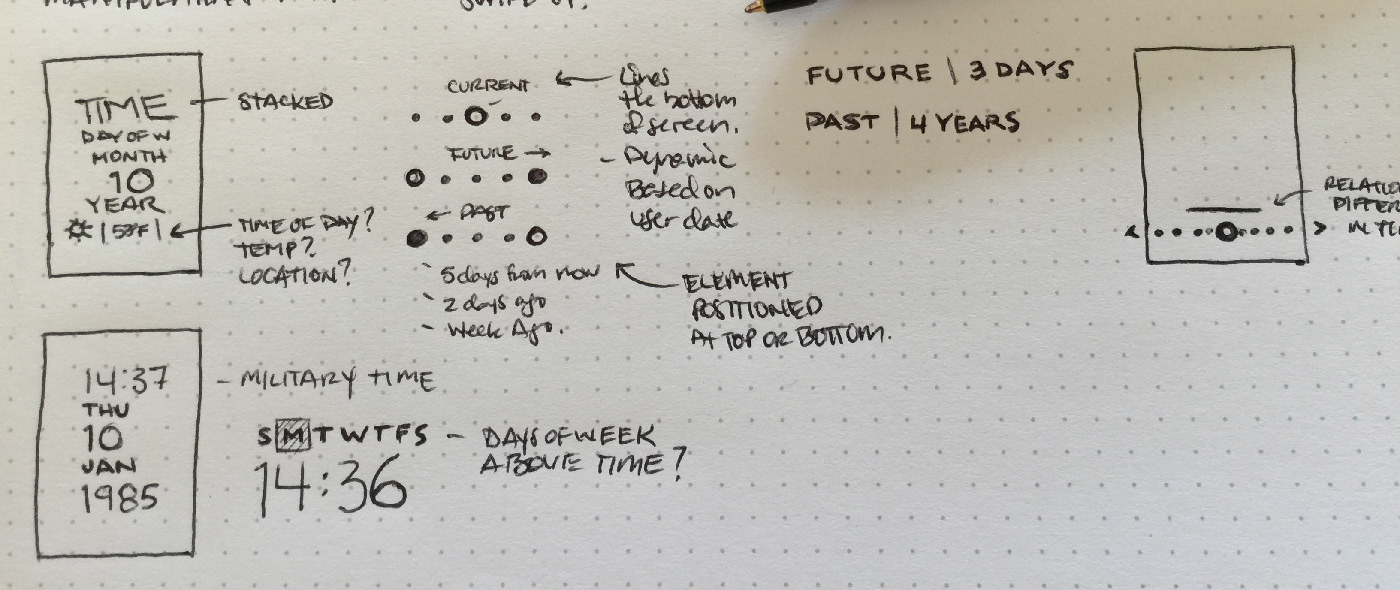 TIME
DAY OF W
MONTH
10
YEAR
STACKED
TIME OF DAY?
TEMP?
LOCATION?
CURRENT
FUTURE →
← PAST
- 5 days from now
- 2 days ago
- Week Ago.
Lines
the bottom
of screen.
- Dynamic
Based on
user date
ELEMENT
POSITIONED
At TOP OR BOTTOM.
FUTURE | 3 DAYS
PAST | 4 YEARS
14:37
THU
10
JAN
1985
- MILITARY TIME
S M T W T F S
14:36
- DAYS OF WEEK
ABOVE TIME?